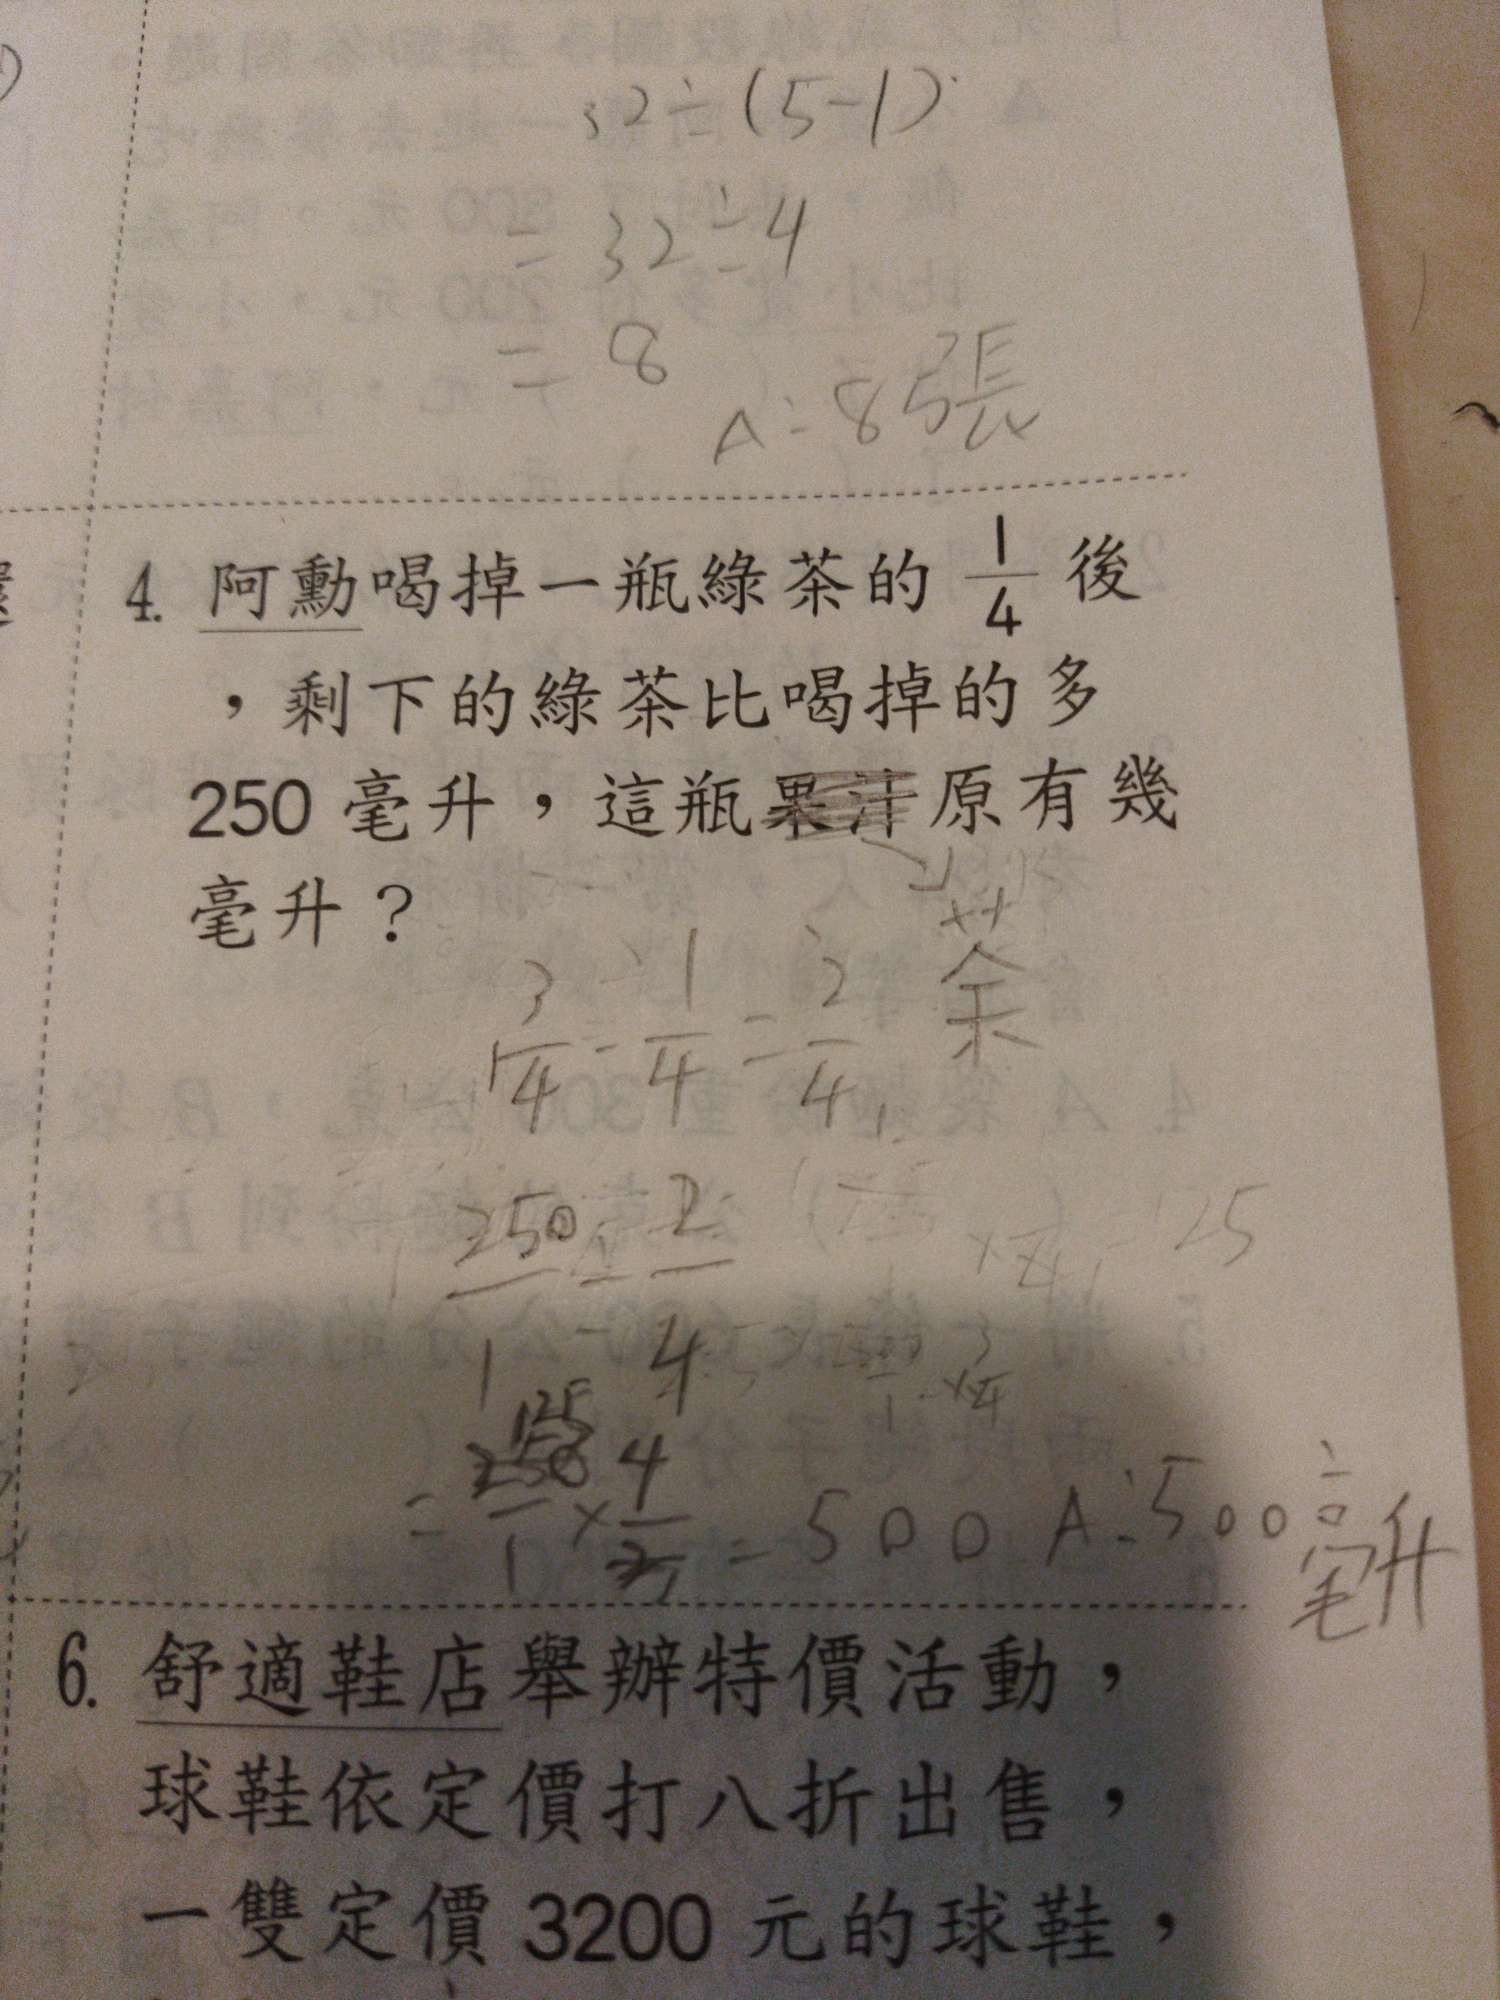 32÷(5-1)
=32÷4
=8
A:8張
4. 阿勳喝掉一瓶綠茶的 1/4 後
，剩下的綠茶比喝掉的多
250 毫升，這瓶果汁原有幾
毫升？
茶
3/4-1/4=2/4
250/1÷2/4
=250/1×4/2=500 A:500毫升
125
6. 舒適鞋店舉辦特價活動，
球鞋依定價打八折出售，
一雙定價 3200 元的球鞋，